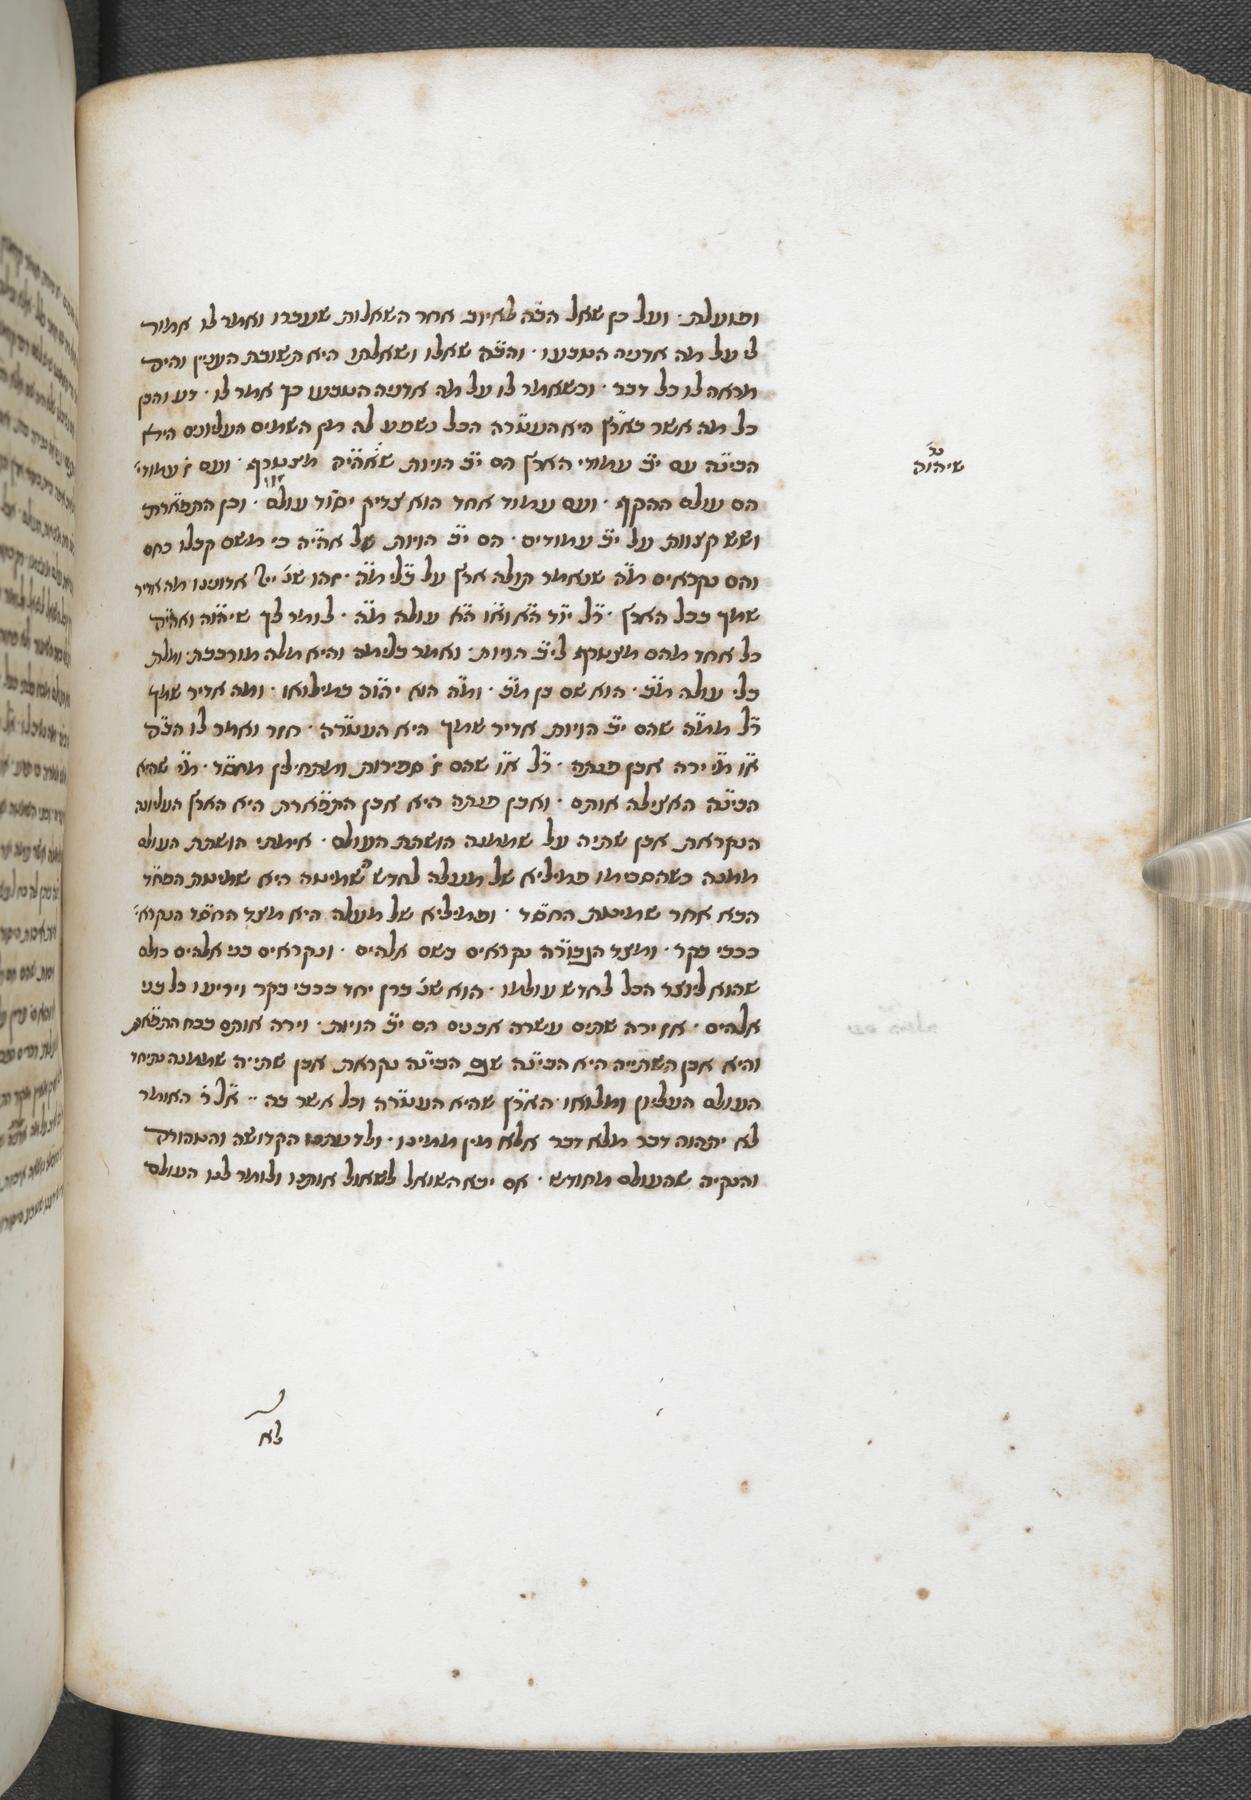 ופועלת · ועל כן שאל הב״ה לאיוב אחר השאלות שעברו ואמר לו אמור
לי על מה אדניה הטבעו · והב״ה שאלו ושאלתו היא תשובת הענין והיה
מראה לו כל דבר · וכשאמר לו על מה אדניה הטבעו כך אמר לו · דע והבן
כל מה אשר בארץ היא העטרה הכל נשפע לה מן השמים העליונים היא
הבינה עם י״ב עמודי הארץ הם י״ב הויות שאהיה מצטרף · ועם ז׳ עמודי׳
הם עולם ההקף · ועם עמוד אחד הוא צדיק יסוד עולם · וכן התפארת
ושש קצוות על י״ב עמודים · הם י״ב הויות של אהיה כי משם קבלו כחם
והם נקראים מ״ה שנאמר תולה ארץ על בלי מ״ה · זהו שנ׳ ייי אדונינו מה אדיר
שמך בכל הארץ · ר״ל יוד הא ואו הא עולה מ״ה · לומר לך שיהוה ואהיה
כל אחד מהם מצטרף לי״ב הויות · ואמר בלימה והיא מלה מורכבת · ומלת
בלי עולה מ״ב · הוא שם בן מ״ב · ומ״ה הוא יהוה במילואו · ומה אדיר שמך
ר״ל ממ״ה שהם י״ב הויות אדיר שמך היא העטרה · חזר ואמר לו הב״ה
או מי ירה אבן פנתה · ר״ל או שהם ז׳ ספירות ומתחילין מחסד · מי שהיא
הבינה האצילה אותם · ואבן פנתה היא אבן התפארת היא הארץ העליונה
הנקראת אבן שתיה על שממנה הושתת העולם · אימתי הושתת העולם
ממנה כשהסכימו פמיליא של מעלה לחדש שמיטה היא שמיטת הפחד
הבא אחר שמיטת החסד · ופמיליא של מעלה היא מצד החסד הנקרא׳
ככבי בקר · ומצד הגבורה נקראים בשם אלהים · ונקראים בני אלהים כולם
שהוא ליוצר הכל לחדש עולמו · הוא שנ׳ ברן יחד ככבי בקר ויריעו כל בני
אלהים · אז ירה שתים עשרה אבנים הם י״ב הויות · וירה אותם בבח התפארת
והיא אבן השתייה היא הבינה שגם הבינה נקראת אבן שתייה שממנה נתיחד
העולם העליון ומלואו · הארץ שהיא העטרה וכל אשר בה ·· אלר׳ האומר
לא יתהוה דבר מלא דבר אלא מין ממינו · ולדעתנו הקדושה והטהורה
והנקיה שהעולם מחודש · אם יבא השואל לשאול אותנו ולומר לנו העולם
נר׳
שיהוה
לא